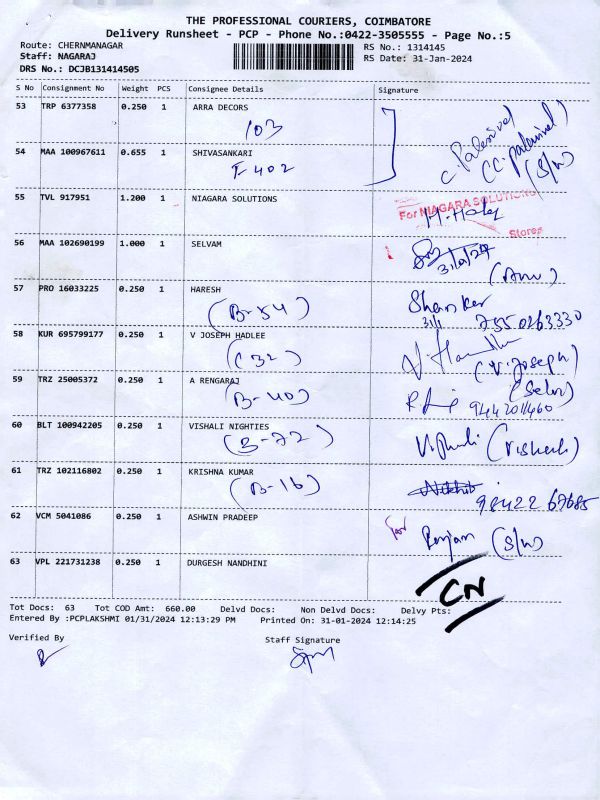 THE PROFESSIONAL COURIERS, COIMBATORE
Delivery Runsheet - PCP - Phone No.:0422-3505555 - Page No.:5
Route: CHERNMANAGAR
RS No.: 1314145
Staff: NAGARAJ
RS Date: 31-Jan-2024
DRS No.: DCJB131414505
S No Consignment No Weight PCS Consignee Details Signature
53 TRP 6377358 0.250 1 ARRA DECORS
103
C. Palanivel
(C. Palanivel)
(S/w)
54 MAA 100967611 0.655 1 SHIVASANKARI
F-402
55 TVL 917951 1.200 1 NIAGARA SOLUTIONS
For NIAGARA SOLUTIONS
Stores
56 MAA 102690199 1.000 1 SELVAM
31/1/24
(Anu)
57 PRO 16033225 0.250 1 HARESH
(B-54)
Shanker
31/1 7550263330
58 KUR 695799177 0.250 1 V JOSEPH HADLEE
(C 32)
(V. Joseph)
59 TRZ 25005372 0.250 1 A RENGARAJ
(B-40)
(Selvi)
9442011460
60 BLT 100942205 0.250 1 VISHALI NIGHTIES
(B-72)
61 TRZ 102116802 0.250 1 KRISHNA KUMAR
(B-16)
98422 67685
62 VCM 5041086 0.250 1 ASHWIN PRADEEP
for Ranjan (S/w)
63 VPL 221731238 0.250 1 DURGESH NANDHINI
CN
Tot Docs: 63 Tot COD Amt: 660.00 Delvd Docs: Non Delvd Docs: Delvy Pts:
Entered By :PCPLAKSHMI 01/31/2024 12:13:29 PM Printed On: 31-01-2024 12:14:25
Verified By Staff Signature